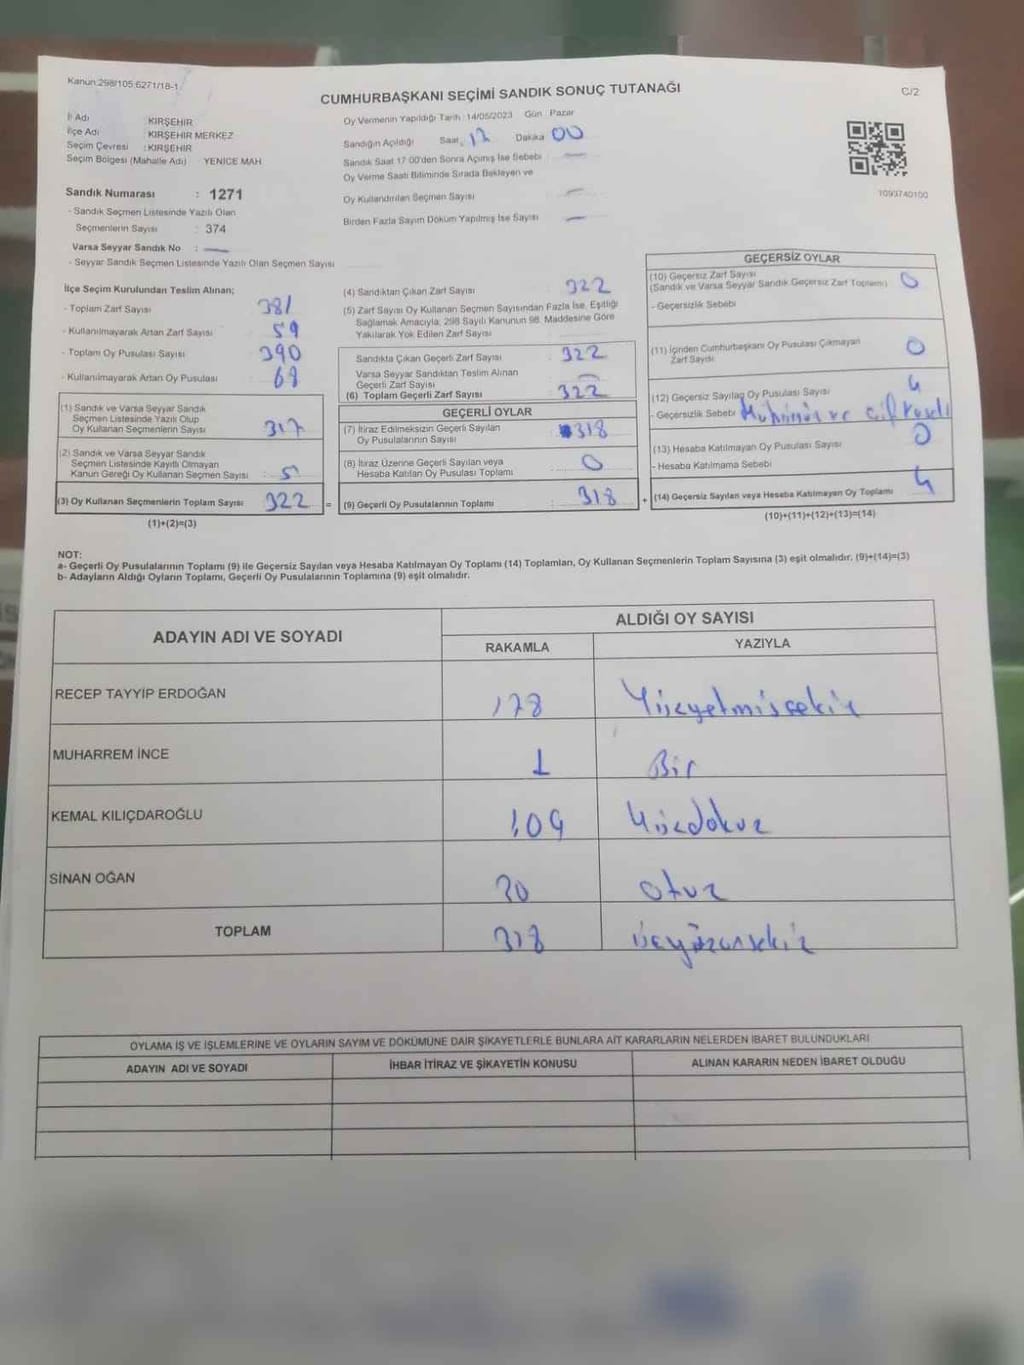 Kanun:298/105;6271/18-1
C/2
CUMHURBAŞKANI SEÇİMİ SANDIK SONUÇ TUTANAĞI
İl Adı KIRŞEHİR
İlçe Adı : KIRŞEHİR MERKEZ
Seçim Çevresi : KIRŞEHİR
Seçim Bölgesi (Mahalle Adı) YENİCE MAH
Sandık Numarası : 1271
- Sandık Seçmen Listesinde Yazılı Olan
Seçmenlerin Sayısı : 374
Varsa Seyyar Sandık No : —
- Seyyar Sandık Seçmen Listesinde Yazılı Olan Seçmen Sayısı
Oy Vermenin Yapıldığı Tarih :14/05/2023 Gün : Pazar
Sandığın Açıldığı Saat: 17 Dakika 00
Sandık Saat 17 00'den Sonra Açılmış İse Sebebi —
Oy Verme Saati Bitiminde Sırada Bekleyen ve
Oy Kullandırılan Seçmen Sayısı —
Birden Fazla Sayım Döküm Yapılmış İse Sayısı —
1093740100
İlçe Seçim Kurulundan Teslim Alınan;
- Toplam Zarf Sayısı 381
- Kullanılmayarak Artan Zarf Sayısı 59
- Toplam Oy Pusulası Sayısı 390
- Kullanılmayarak Artan Oy Pusulası 68
(1) Sandık ve Varsa Seyyar Sandık
Seçmen Listesinde Yazılı Olup
Oy Kullanan Seçmenlerin Sayısı : 317
(2) Sandık ve Varsa Seyyar Sandık
Seçmen Listesinde Kayıtlı Olmayan
Kanun Gereği Oy Kullanan Seçmen Sayısı : 5
(3) Oy Kullanan Seçmenlerin Toplam Sayısı 322
(1)+(2)=(3)
(4) Sandıktan Çıkan Zarf Sayısı 322
(5) Zarf Sayısı Oy Kullanan Seçmen Sayısından Fazla İse, Eşitliği
Sağlamak Amacıyla, 298 Sayılı Kanunun 98. Maddesine Göre
Yakılarak Yok Edilen Zarf Sayısı
Sandıkta Çıkan Geçerli Zarf Sayısı 322
Varsa Seyyar Sandıktan Teslim Alınan
Geçerli Zarf Sayısı —
(6) Toplam Geçerli Zarf Sayısı : 322
GEÇERLİ OYLAR
(7) İtiraz Edilmeksizin Geçerli Sayılan
Oy Pusulalarının Sayısı : 318
(8) İtiraz Üzerine Geçerli Sayılan veya
Hesaba Katılan Oy Pusulası Toplamı : 0
= (9) Geçerli Oy Pusulalarının Toplamı : 318
GEÇERSİZ OYLAR
(10) Geçersiz Zarf Sayısı
(Sandık ve Varsa Seyyar Sandık Geçersiz Zarf Toplamı) 0
- Geçersizlik Sebebi
(11) İçinden Cumhurbaşkanı Oy Pusulası Çıkmayan
Zarf Sayısı 0
(12) Geçersiz Sayılan Oy Pusulası Sayısı 4
- Geçersizlik Sebebi
(13) Hesaba Katılmayan Oy Pusulası Sayısı 0
- Hesaba Katılmama Sebebi
+ (14) Geçersiz Sayılan veya Hesaba Katılmayan Oy Toplamı 4
(10)+(11)+(12)+(13)=(14)
NOT:
a- Geçerli Oy Pusulalarının Toplamı (9) ile Geçersiz Sayılan veya Hesaba Katılmayan Oy Toplamı (14) Toplamları, Oy Kullanan Seçmenlerin Toplam Sayısına (3) eşit olmalıdır. (9)+(14)=(3)
b- Adayların Aldığı Oyların Toplamı, Geçerli Oy Pusulalarının Toplamına (9) eşit olmalıdır.
ADAYIN ADI VE SOYADI
ALDIĞI OY SAYISI
RAKAMLA YAZIYLA
RECEP TAYYİP ERDOĞAN 178 Yüzyetmişsekiz
MUHARREM İNCE 1 Bir
KEMAL KILIÇDAROĞLU 109 Yüzdokuz
SİNAN OĞAN 30 otuz
TOPLAM 318 üçyüzonsekiz
OYLAMA İŞ VE İŞLEMLERİNE VE OYLARIN SAYIM VE DÖKÜMÜNE DAİR ŞİKAYETLERLE BUNLARA AİT KARARLARIN NELERDEN İBARET BULUNDUKLARI
ADAYIN ADI VE SOYADI İHBAR İTİRAZ VE ŞİKAYETİN KONUSU ALINAN KARARIN NEDEN İBARET OLDUĞU